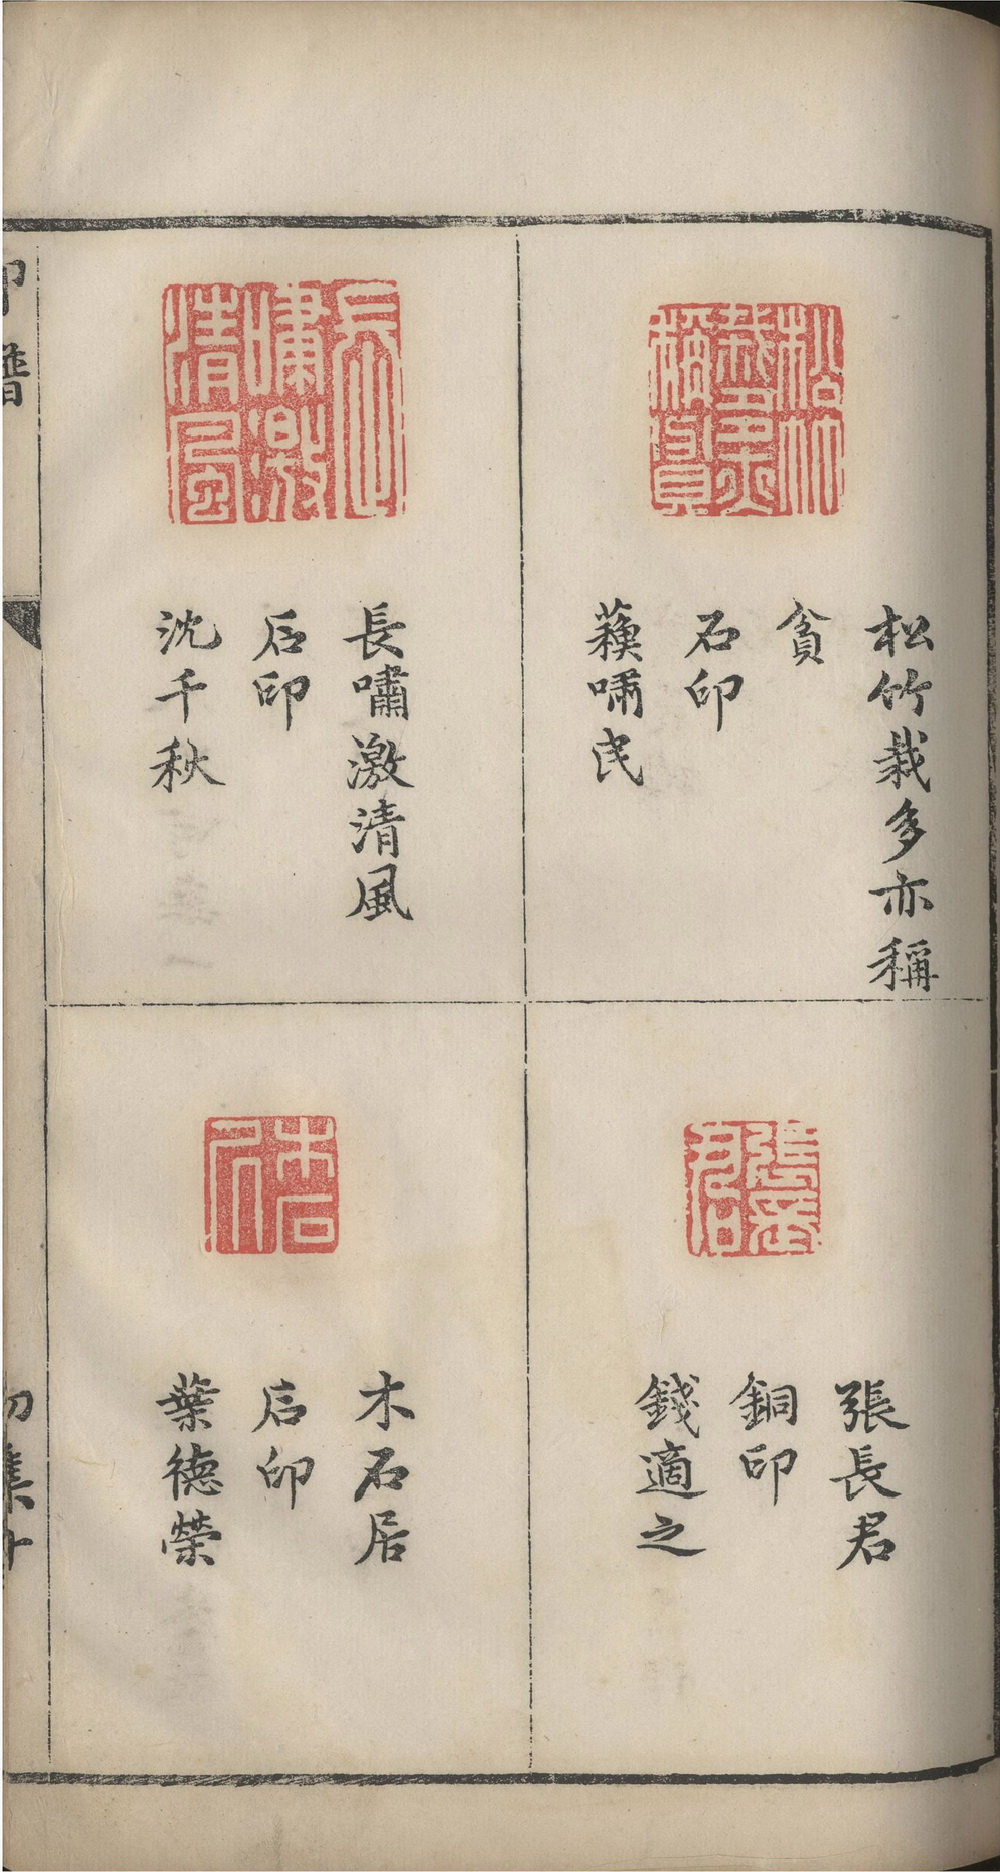 松竹栽多亦稱
貧
石印
蘓嘯民
張長君
銅印
錢適之
長嘯激清風
石印
沈千秋
木石居
石印
葉德榮
印譜
初集十